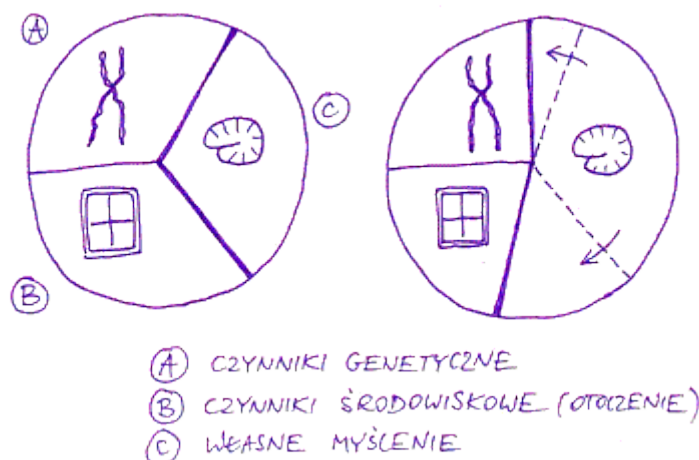 A
C
B
A CZYNNIKI GENETYCZNE
B CZYNNIKI ŚRODOWISKOWE (OTOCZENIE)
C WŁASNE MYŚLENIE